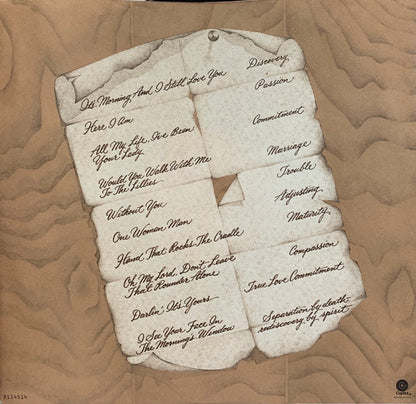 It's Morning And I Still Love You
Discovery
Here I Am
Passion
All My Life I've Been
Your Lady
Commitment
Would You Walk With Me
To The Lillies
Marriage
Without You
Trouble
One Woman Man
Adjusting
Hand That Rocks The Cradle
Maturity
Oh My Lord Don't Leave
That Rounder Alone
Compassion
Darlin' It's Yours
True Love Commitment
I See Your Face In
The Morning's Window
Separation by death
rediscovery by spirit
R114514
Capitol